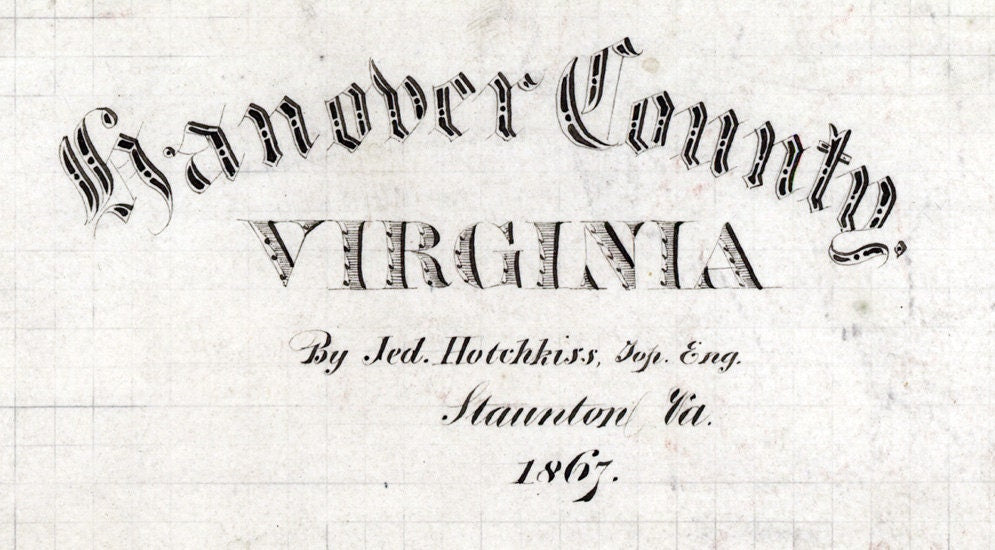 Hanover County.
VIRGINIA
By Jed. Hotchkiss, Top. Eng.
Staunton Va.
1867.